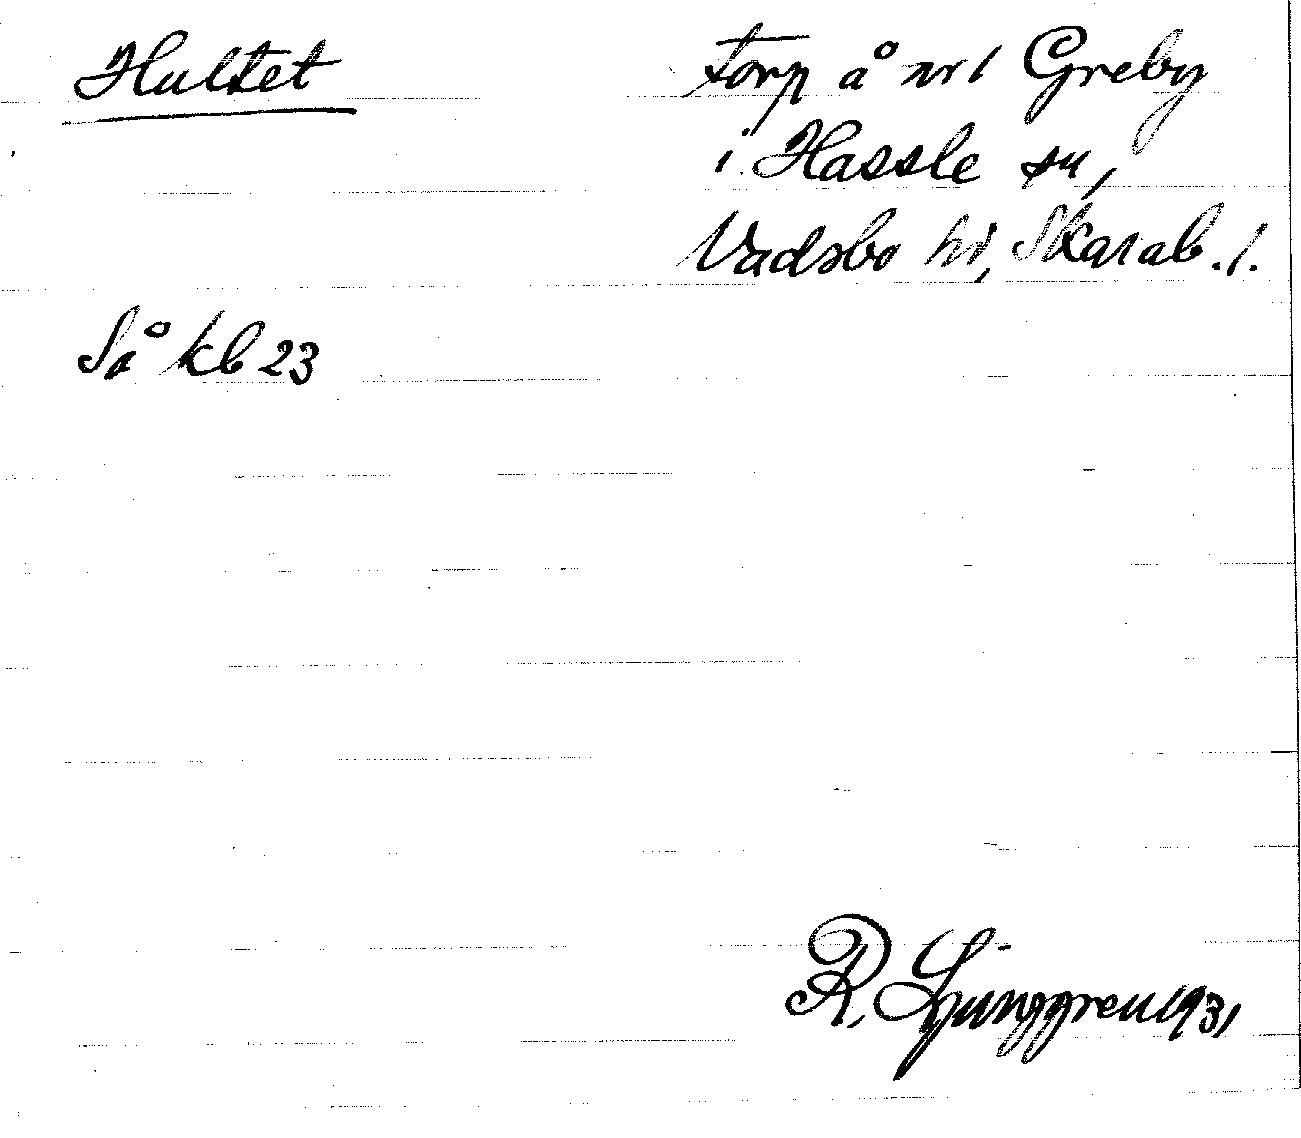 Hultet
Torp å nr 1 Greby
i Hassle sn,
Vadsbo hd, Skarab. l.
Så kb 23
R. Ljunggren 1931